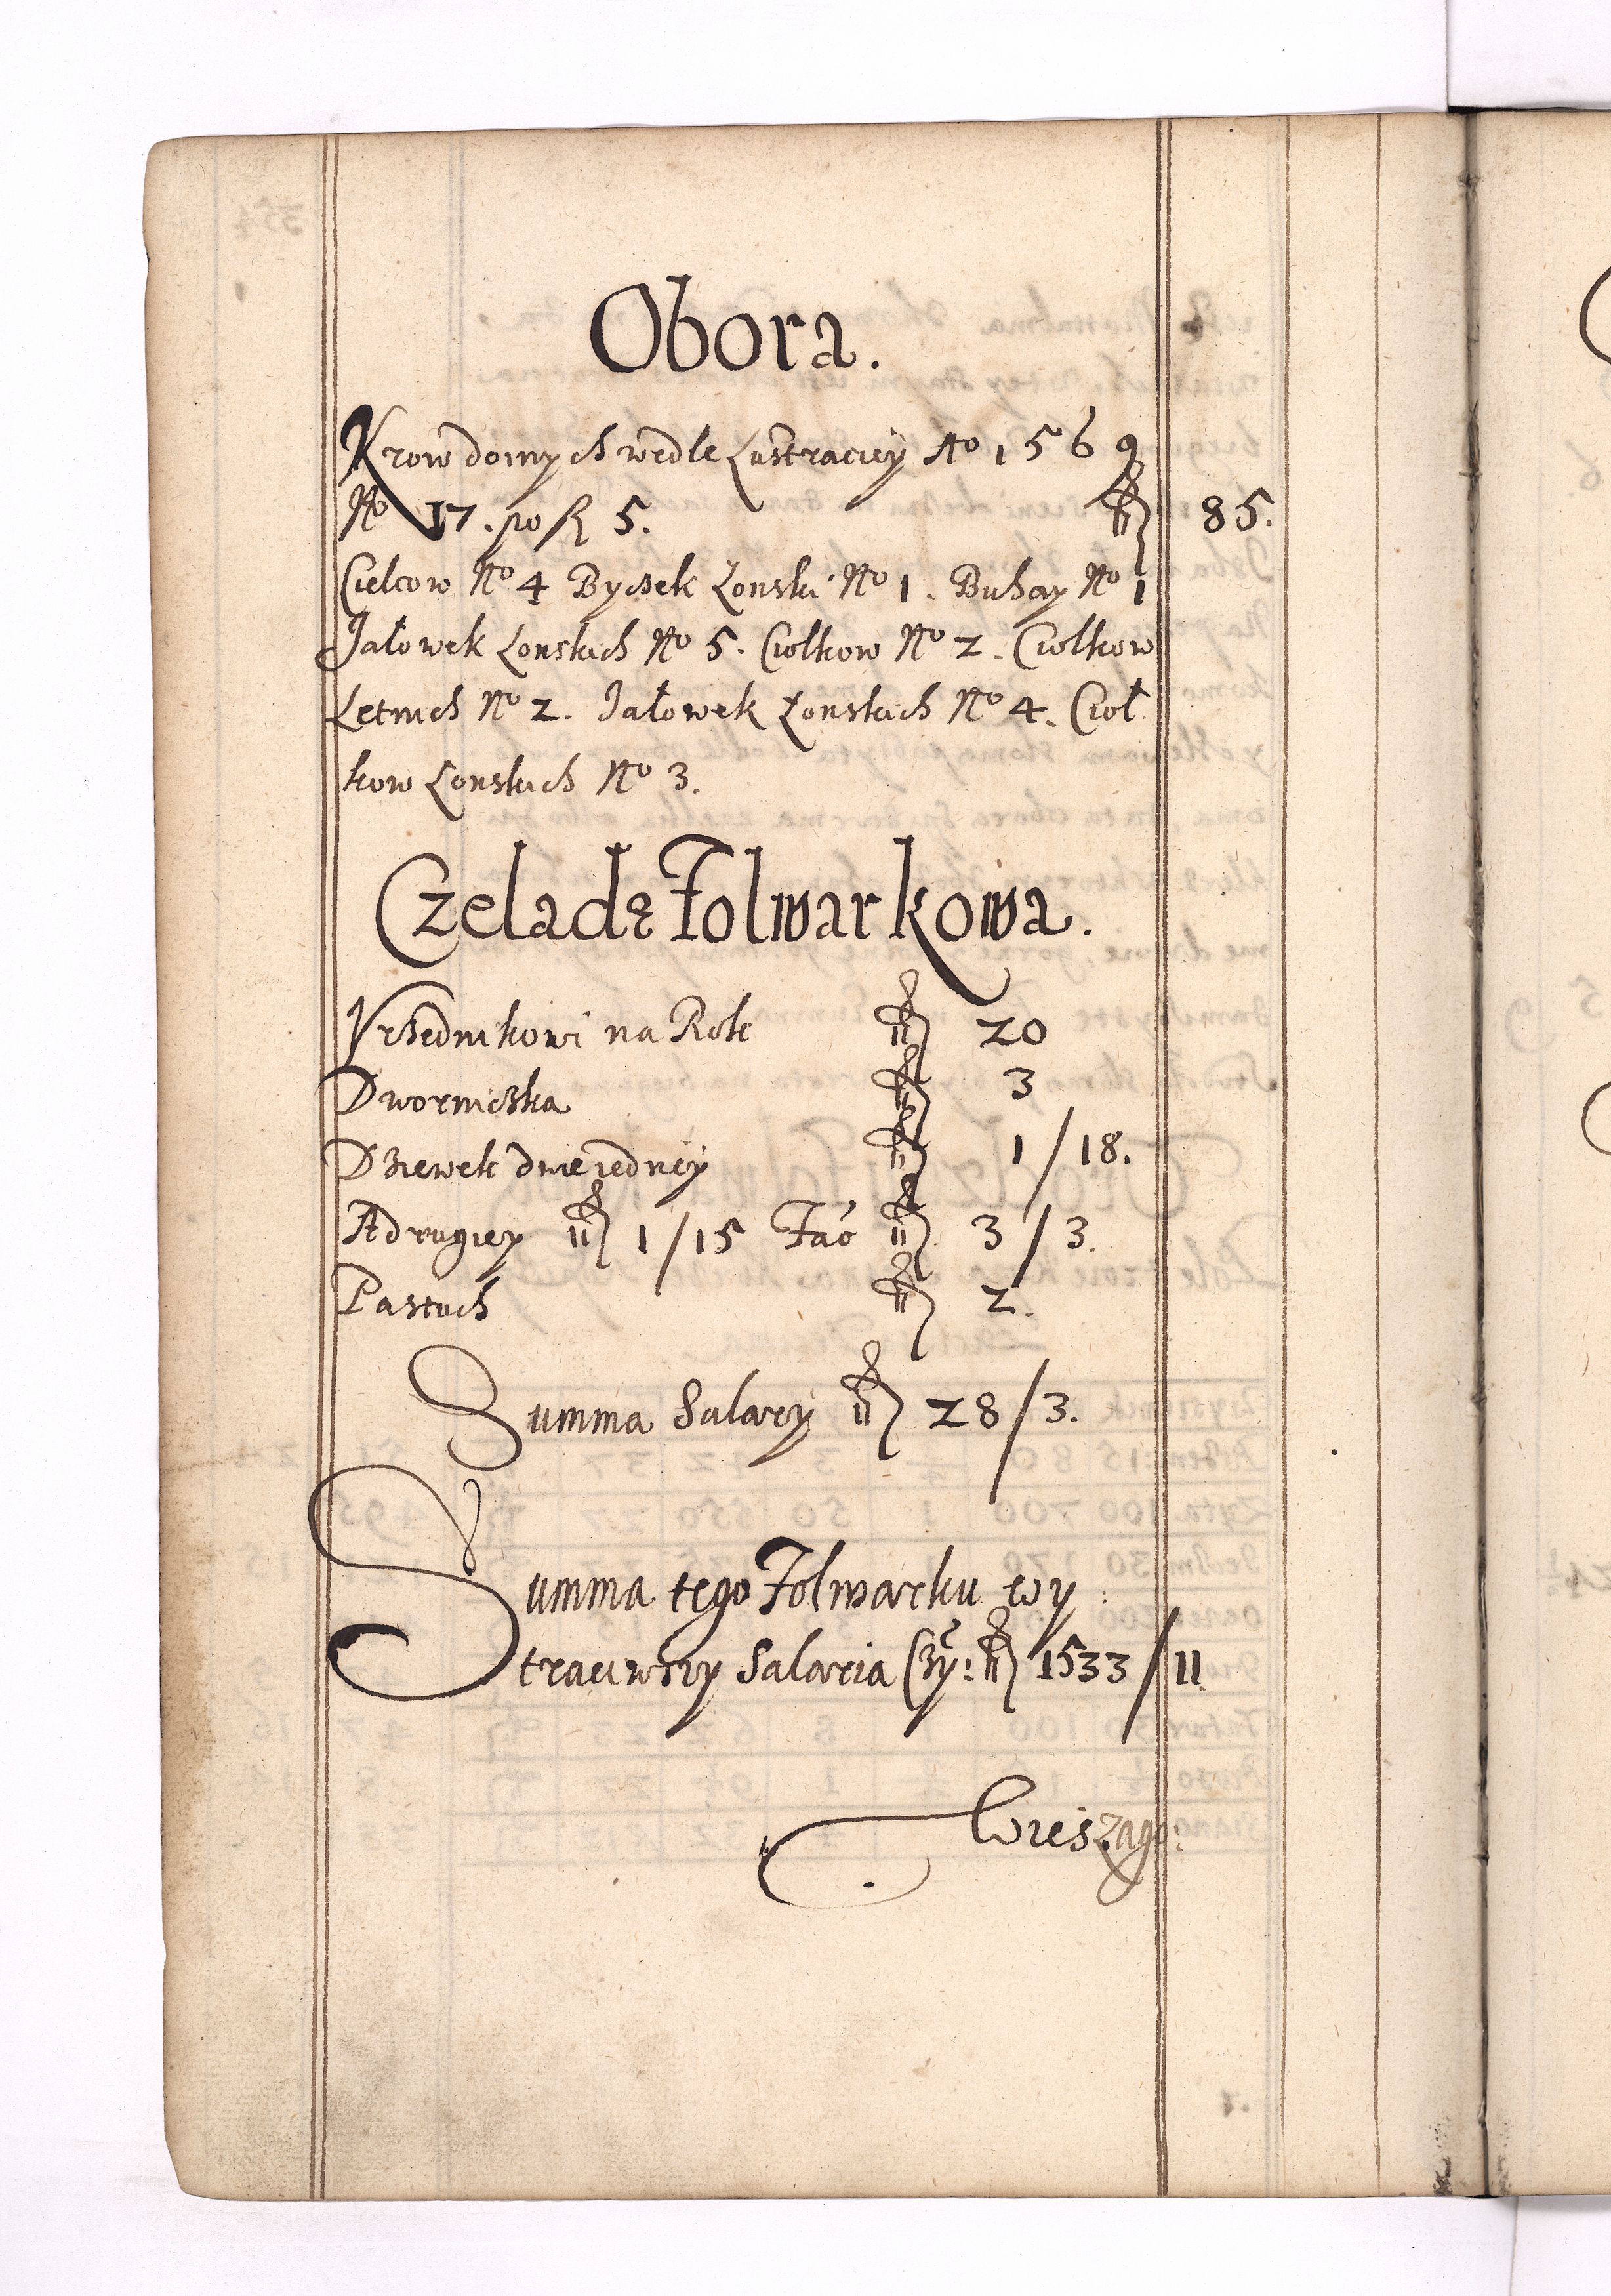 Obora.
Krow domych wedle Lustraciey Ao 1569
No 17. po fl 5. fl 85.
Cielcow No 4 Byczek Łonski No 1. Buhay No 1
Jałowek Łonskich No 5. Ciołkow No 2. Ciołkow
Letnich No 2. Jałowek Łonskich No 4. Cioł
kow Łonskich No 3.
Czeladz Folwarkowa.
Vrzednikowi na Rok fl 20
Dworniczka fl 3
Dziewek dwie jedney fl 1/18.
A drugiey fl 1/15 Fac fl 3/3.
Pastuch fl 2.
Summa Salary fl 28/3.
Summa tego Folwarku wy
traciwszy Salaria Czy: fl 1533/11